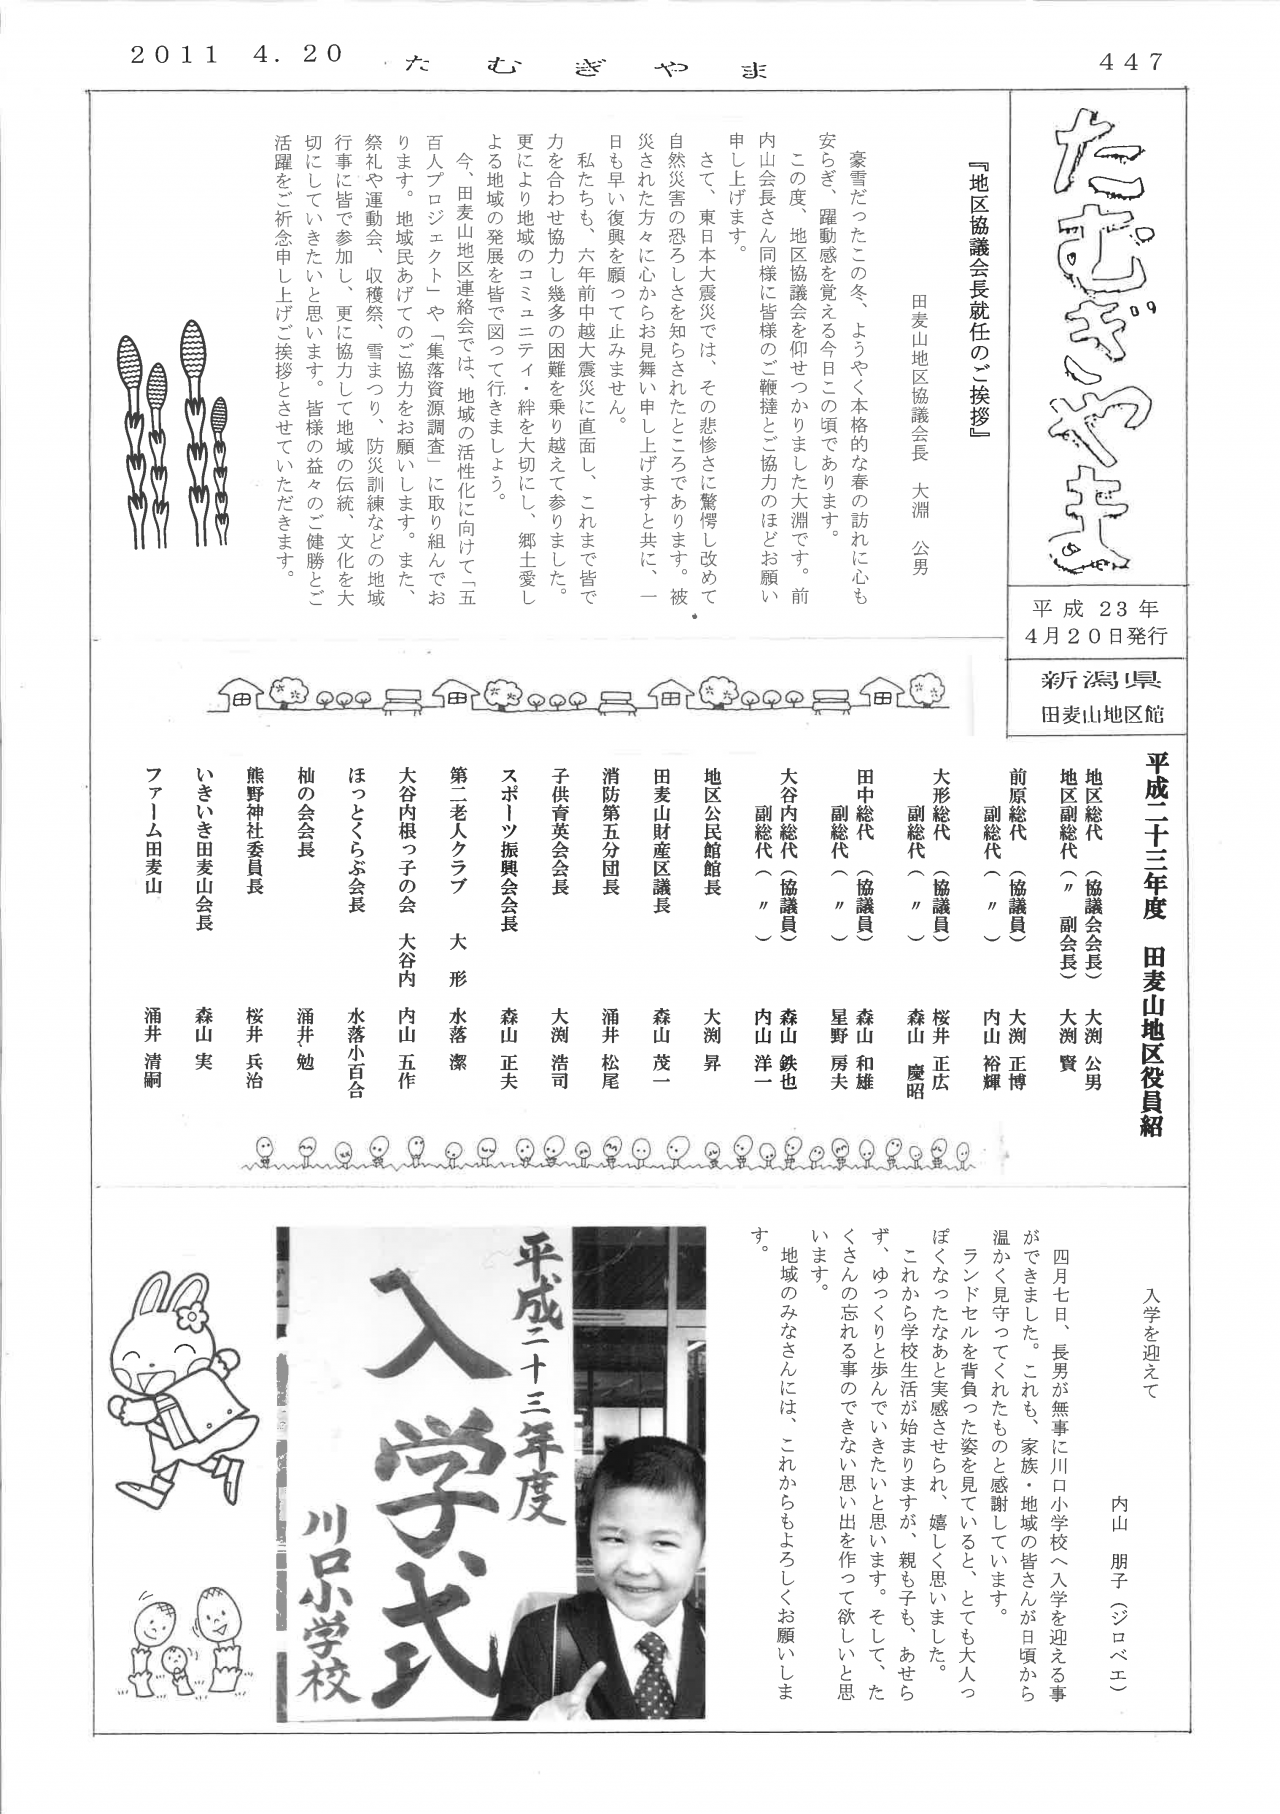 2011 4.20
たむぎやま
447
たむぎやま
平成23年
4月20日発行
新潟県
田麦山地区館
『地区協議会長就任のご挨拶』
田麦山地区協議会長 大淵 公男
豪雪だったこの冬、ようやく本格的な春の訪れに心も
安らぎ、躍動感を覚える今日この頃であります。
この度、地区協議会を仰せつかりました大淵です。前
内山会長さん同様に皆様のご鞭撻とご協力のほどお願い
申し上げます。
さて、東日本大震災では、その悲惨さに驚愕し改めて
自然災害の恐ろしさを知らされたところであります。被
災された方々に心からお見舞い申し上げますと共に、一
日も早い復興を願って止みません。
私たちも、六年前中越大震災に直面し、これまで皆で
力を合わせ協力し幾多の困難を乗り越えて参りました。
更により地域のコミュニティ・絆を大切にし、郷土愛し
よる地域の発展を皆で図って行きましょう。
今、田麦山地区連絡会では、地域の活性化に向けて「五
百人プロジェクト」や「集落資源調査」に取り組んでお
ります。地域民あげてのご協力をお願いします。また、
祭礼や運動会、収穫祭、雪まつり、防災訓練などの地域
行事に皆で参加し、更に協力して地域の伝統、文化を大
切にしていきたいと思います。皆様の益々のご健勝とご
活躍をご祈念申し上げご挨拶とさせていただきます。
平成二十三年度 田麦山地区役員紹
地区総代 （協議会会長） 大渕 公男
地区副総代（〃 副会長） 大渕 賢
前原総代 （協議員） 大渕 正博
副総代（ 〃 ） 内山 裕輝
大形総代 （協議員） 桜井 正広
副総代（ 〃 ） 森山 慶昭
田中総代 （協議員） 森山 和雄
副総代（ 〃 ） 星野 房夫
大谷内総代（協議員） 森山 鉄也
副総代（ 〃 ） 内山 洋一
地区公民館館長 大渕 昇
田麦山財産区議長 森山 茂一
消防第五分団長 涌井 松尾
子供育英会会長 大渕 浩司
スポーツ振興会会長 森山 正夫
第二老人クラブ 大 形 水落 潔
大谷内根っ子の会 大谷内 内山 五作
ほっとくらぶ会長 水落小百合
杣の会会長 涌井 勉
熊野神社委員長 桜井 兵治
いきいき田麦山会長 森山 実
ファーム田麦山 涌井 清嗣
入学を迎えて
内山 朋子（ジロベエ）
四月七日、長男が無事に川口小学校へ入学を迎える事
ができました。これも、家族・地域の皆さんが日頃から
温かく見守ってくれたものと感謝しています。
ランドセルを背負った姿を見ていると、とても大人っ
ぽくなったなあと実感させられ、嬉しく思いました。
これから学校生活が始まりますが、親も子も、あせら
ず、ゆっくりと歩んでいきたいと思います。そして、た
くさんの忘れる事のできない思い出を作って欲しいと思
います。
地域のみなさんには、これからもよろしくお願いしま
す。
平成二十三年度
入学式
川口小学校